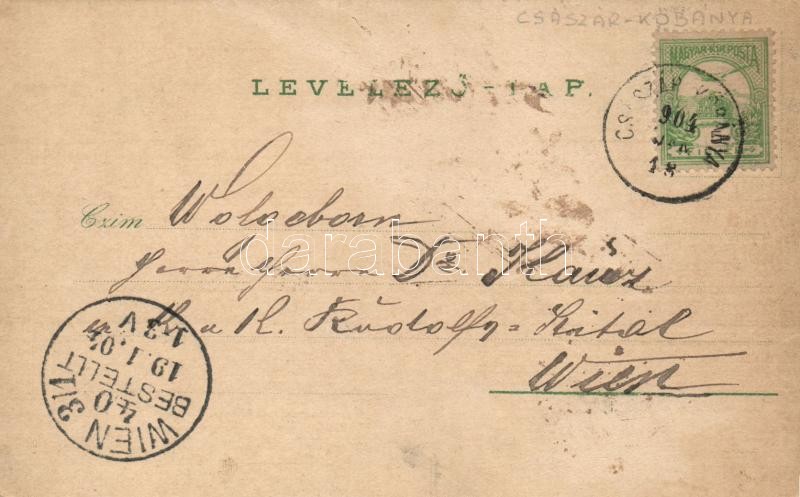 CSÁSZÁR-KŐBÁNYA
MAGYAR KIR. POSTA
LEVELEZŐ-LAP.
CSÁSZÁR KŐBÁNYA
904
JAN
18
Czim Wolgeborn
Herrn Herrn Dr. Klaus
K. u K. Rudolfs=Spital
Wien
darabanth
WIEN 3/1
40
BESTELLT
19.1.04
1-3V